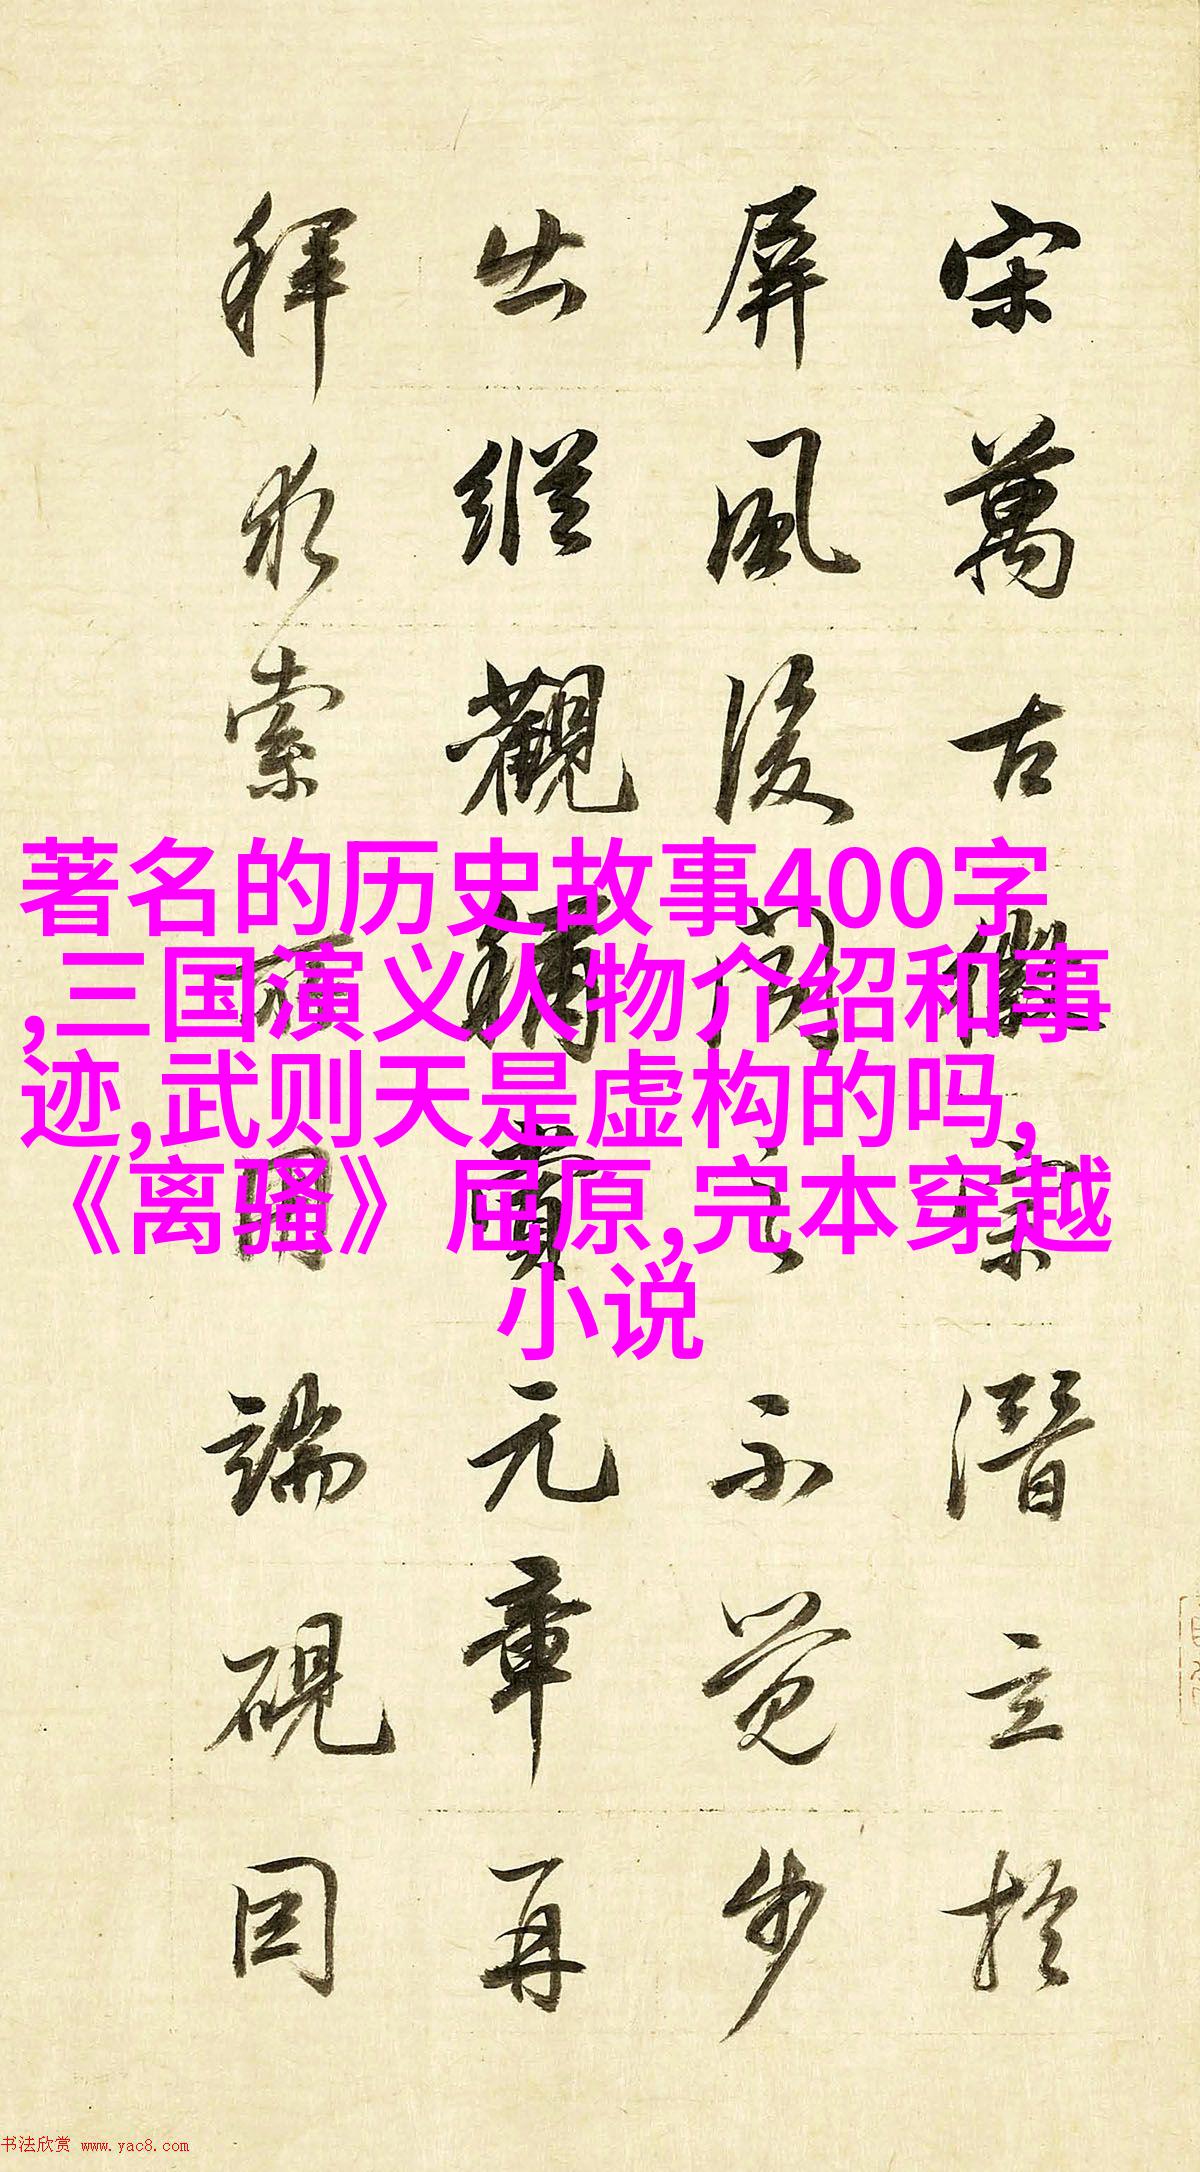 宋萬古徽宗潛立於
屏風後聞之不覺步
出縱觀稱賞元章再
拜求索所用端硯因
著名的历史故事400字
,三国演义人物介绍和事
迹,武则天是虚构的吗,
《离骚》屈原,完本穿越
小说
书法欣赏 www.yac8.com